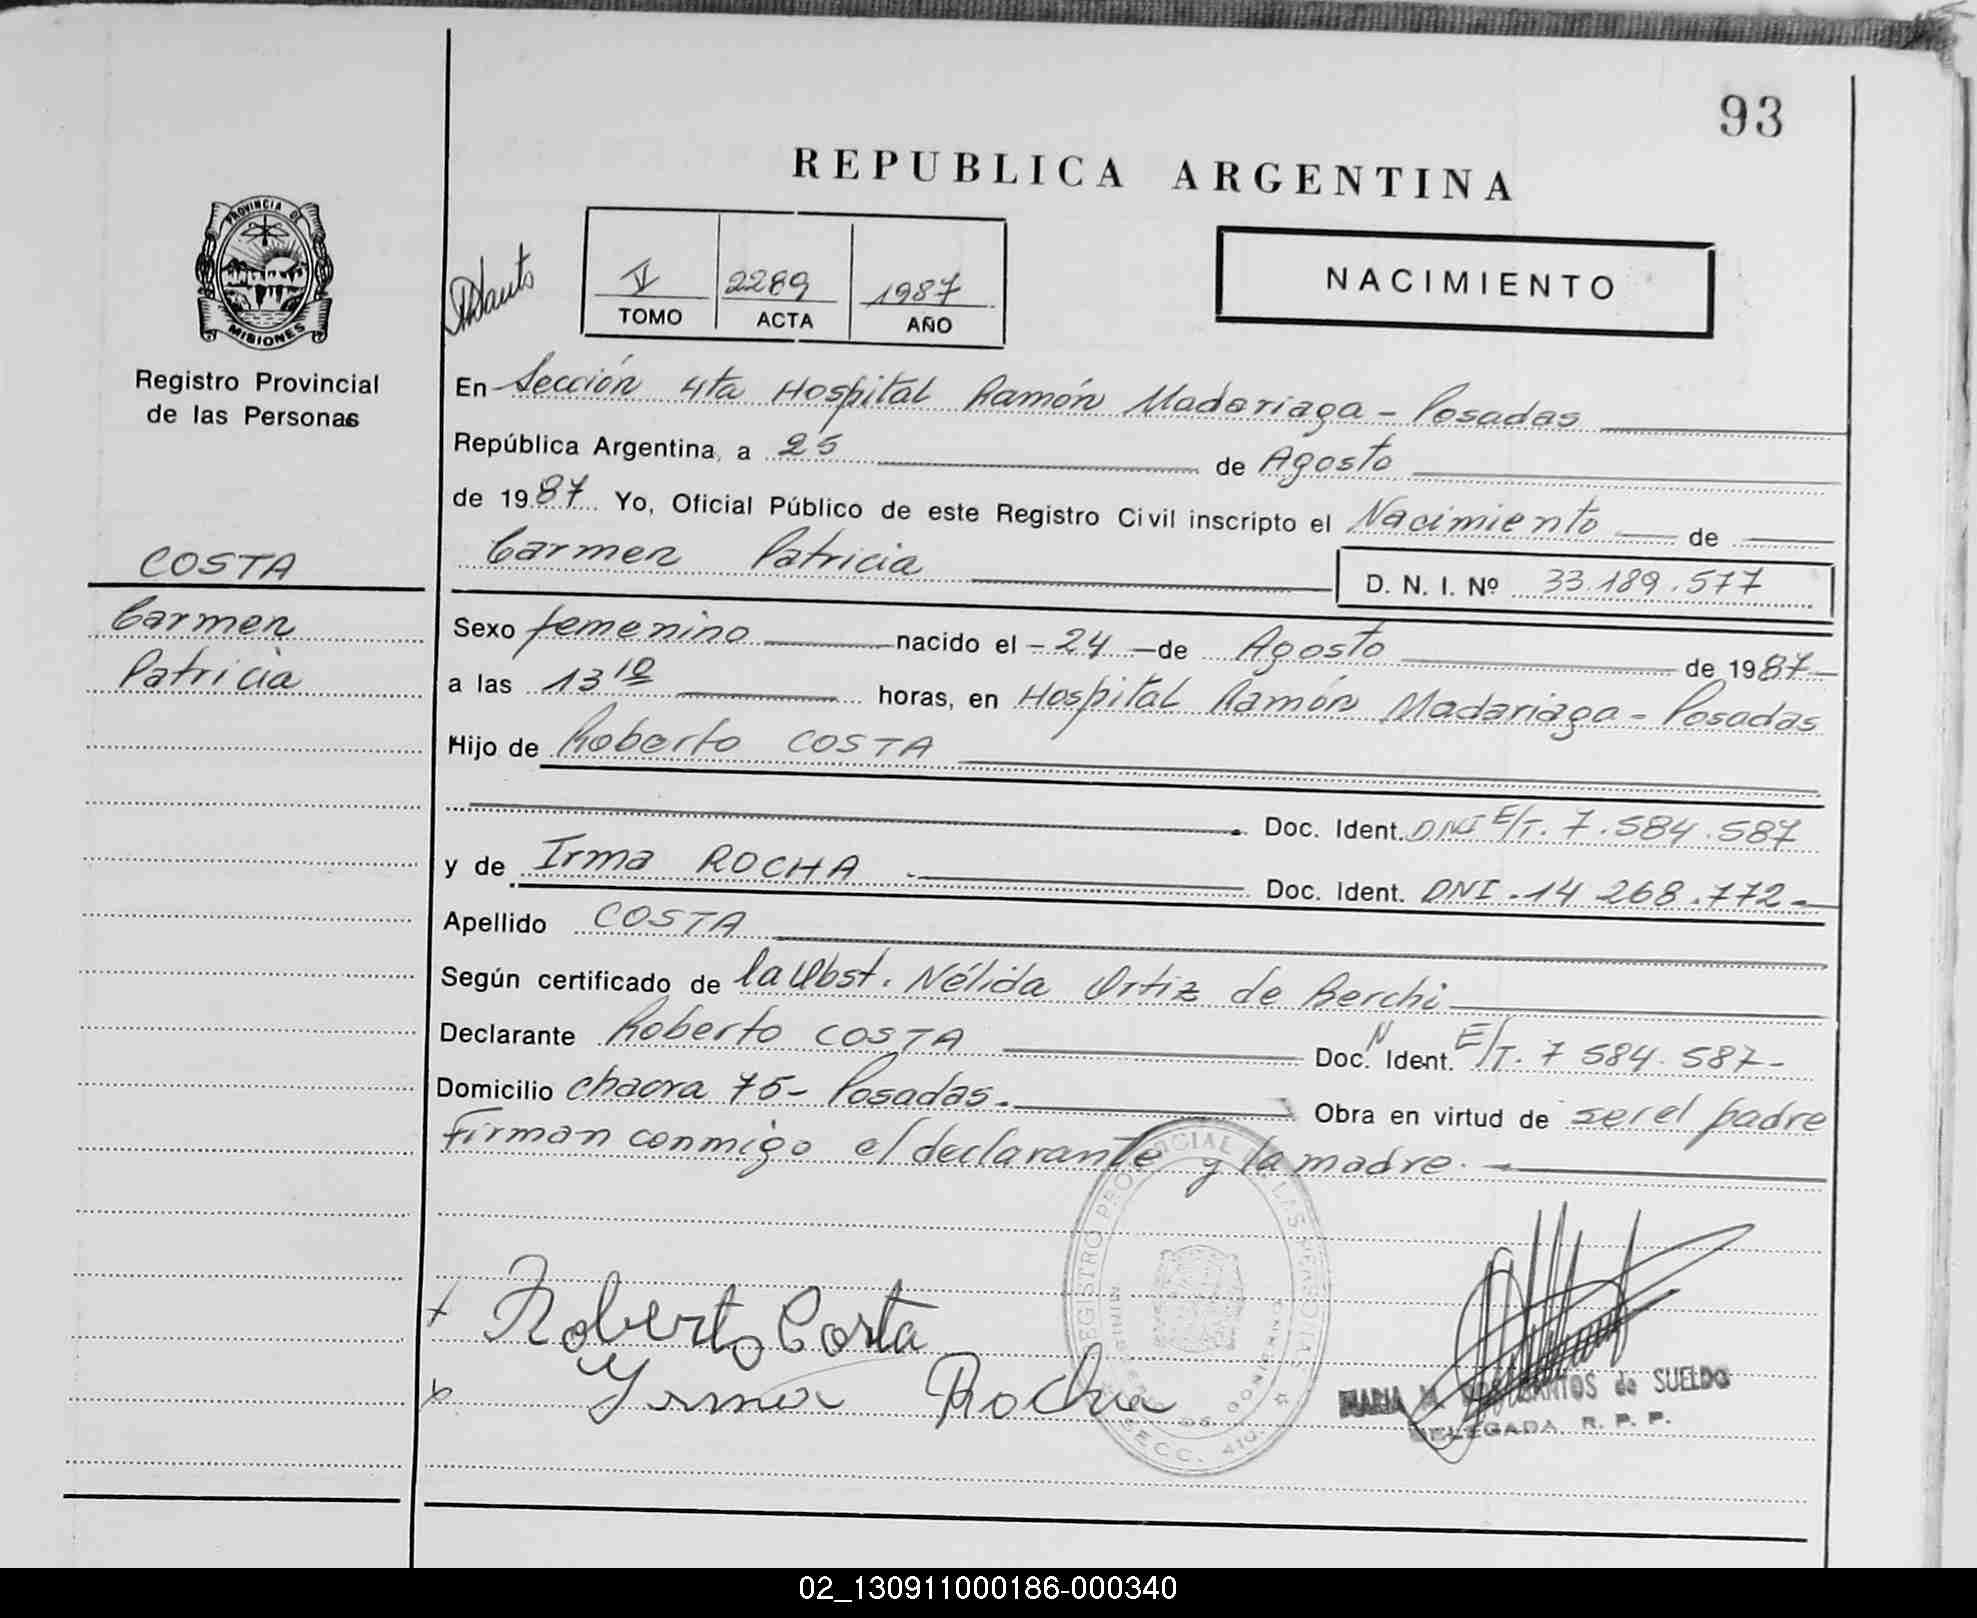 93
REPUBLICA ARGENTINA
PROVINCIA DE
MISIONES
Registro Provincial
de las Personas
V 2289 1987
TOMO ACTA AÑO
NACIMIENTO
En Sección 4ta Hospital Ramón Madariaga - Posadas
República Argentina, a 25 de Agosto
de 1987 Yo, Oficial Público de este Registro Civil inscripto el Nacimiento de
Carmen Patricia D. N. I. Nº 33.189.577
COSTA
Carmen
Patricia
Sexo femenino nacido el - 24 - de Agosto de 1987-
a las 13 10 horas, en Hospital Ramón Madariaga - Posadas
Hijo de Roberto COSTA
Doc. Ident. DNI E/T. 7.584.587
y de Irma ROCHA Doc. Ident. DNI. 14 268.772-
Apellido COSTA
Según certificado de la Obst. Nélida Ortiz de Berchi
Declarante Roberto COSTA Doc. N Ident. E/T. 7 584. 587-
Domicilio chacra 75- Posadas. Obra en virtud de ser el padre
Firman conmigo el declarante y la madre.
REGISTRO PROVINCIAL DE LAS PERSONAS
SECC. 4ta.
x Roberto Costa
x Yrma Rocha
MARIA SANTOS de SUELDO
DELEGADA R. P. P.
02_130911000186-000340